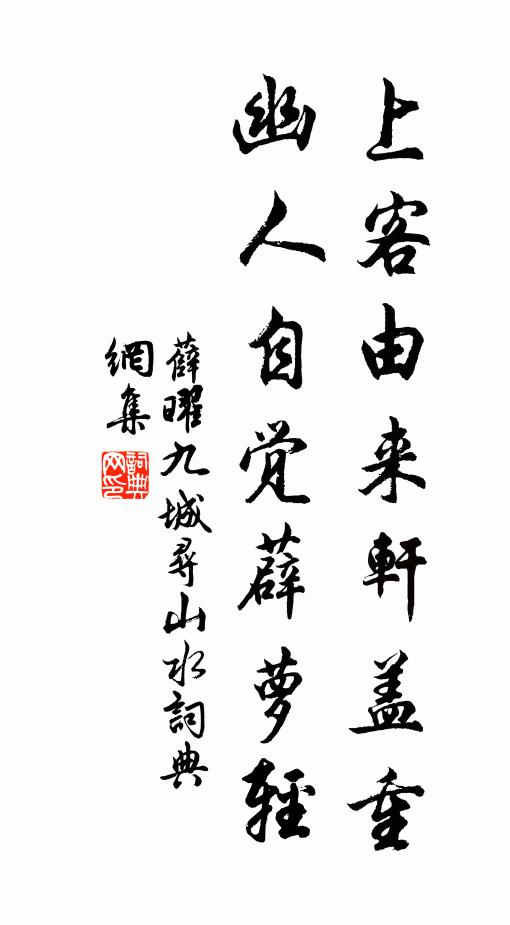 上客由来軒盖重
幽人自觉薜萝輕
薛曜九城尋山水詞典
網集
詞典網印